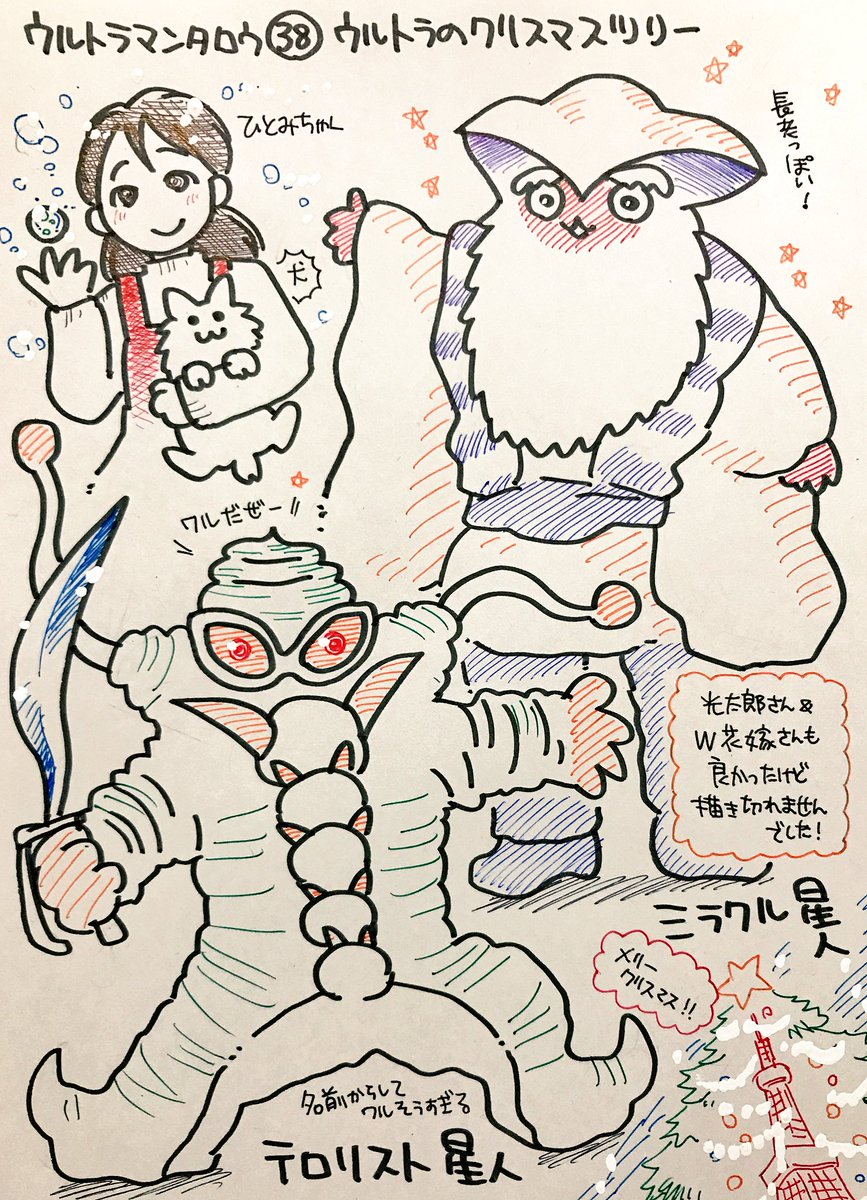 ウルトラマンタロウ㊳ ウルトラのクリスマスツリー
ひとみちゃん
長老っぽい!
犬
ワルだぜー!!
光太郎さん&
W花嫁さんも
良かったけど
描き切れません
でした!
ミラクル星人
メリー
クリスマス!!
名前からして
ワルそうすぎる
テロリスト星人